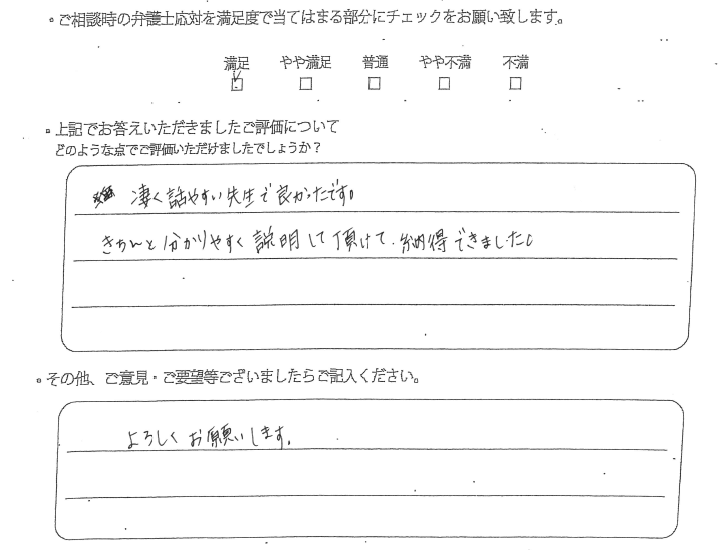 ・ご相談時の弁護士応対を満足度で当てはまる部分にチェックをお願い致します。
満足 やや満足 普通 やや不満 不満
・上記でお答えいただきましたご評価について
どのような点でご評価いただけましたでしょうか？
凄く話やすい先生で良かったです。
きちんと分かりやすく説明して頂けて、納得できました。
・その他、ご意見・ご要望等ございましたらご記入ください。
よろしくお願いします。